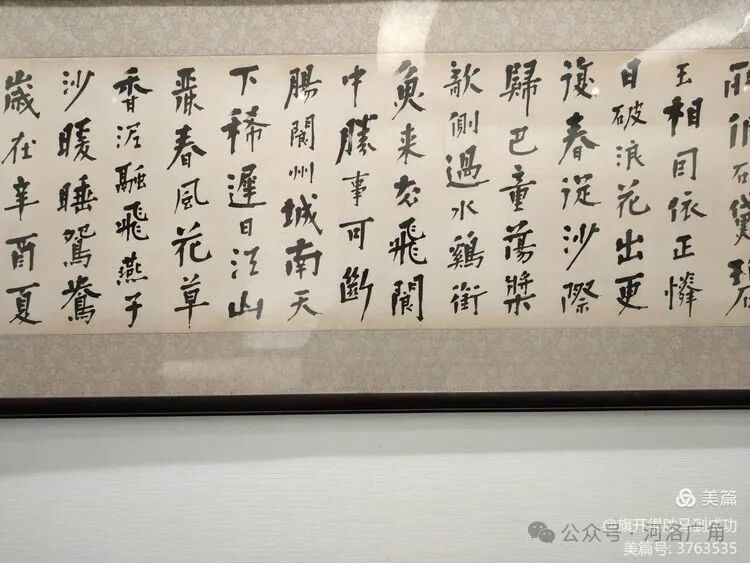 所似石黛碧
玉相因依正憐
日破浪花出更
復春從沙際
歸巴童蕩槳
欹側過水鷄銜
魚来去飛閬
中勝事可斷
腸閬州城南天
下稀遲日江山
麗春風花草
香泥融飛燕子
沙暖睡鴛鴦
歲在辛酉夏
美篇
@旗开得胜马到成功
公众号·河洛广角
美篇号: 3763535